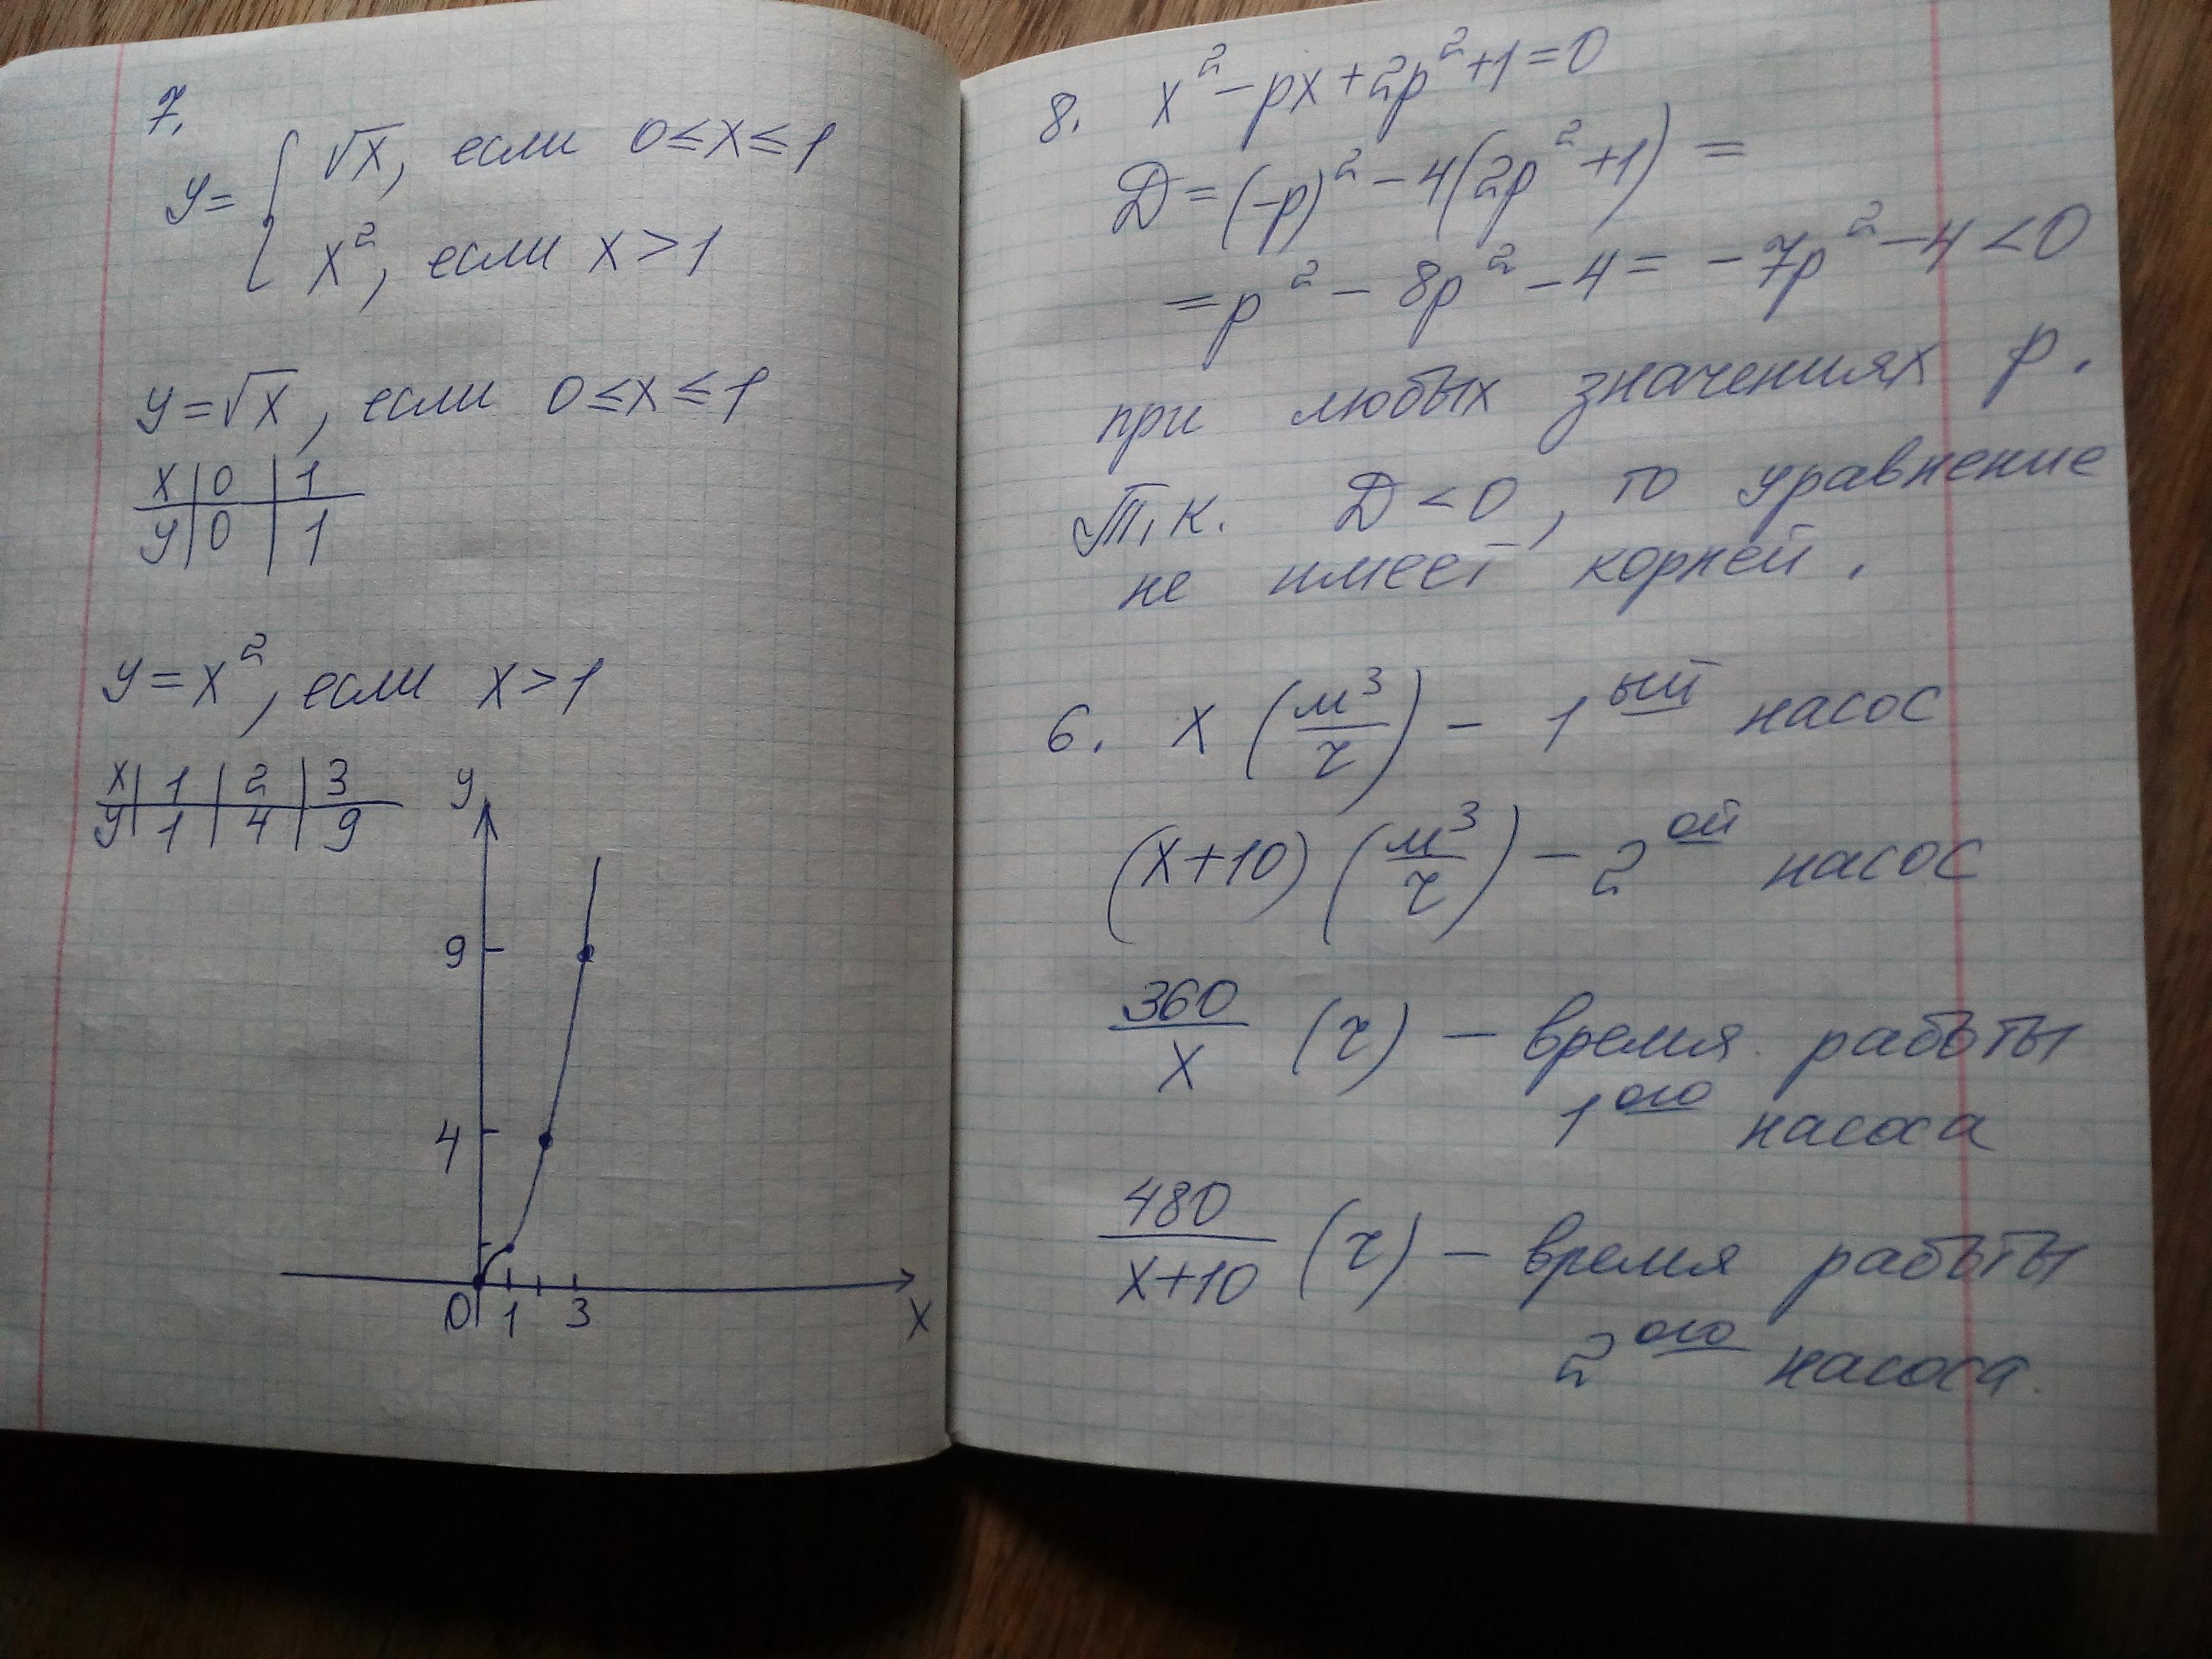 7.
y= { √x, если 0≤x≤1
x², если x>1
y=√x, если 0≤x≤1
x | 0 | 1
y | 0 | 1
y=x², если x>1
x | 1 | 2 | 3
y | 1 | 4 | 9
y
9
4
0 1 3 x
8. x²-px+2p²+1=0
D=(-p)²-4(2p²+1)=
=p²-8p²-4=-7p²-4<0
при любых значениях p.
Т.к. D<0, то уравнение
не имеет корней.
6. x (м³/ч) - 1ый насос
(x+10) (м³/ч) - 2ой насос
360/x (ч) - время работы
1ого насоса
480/(x+10) (ч) - время работы
2ого насоса.